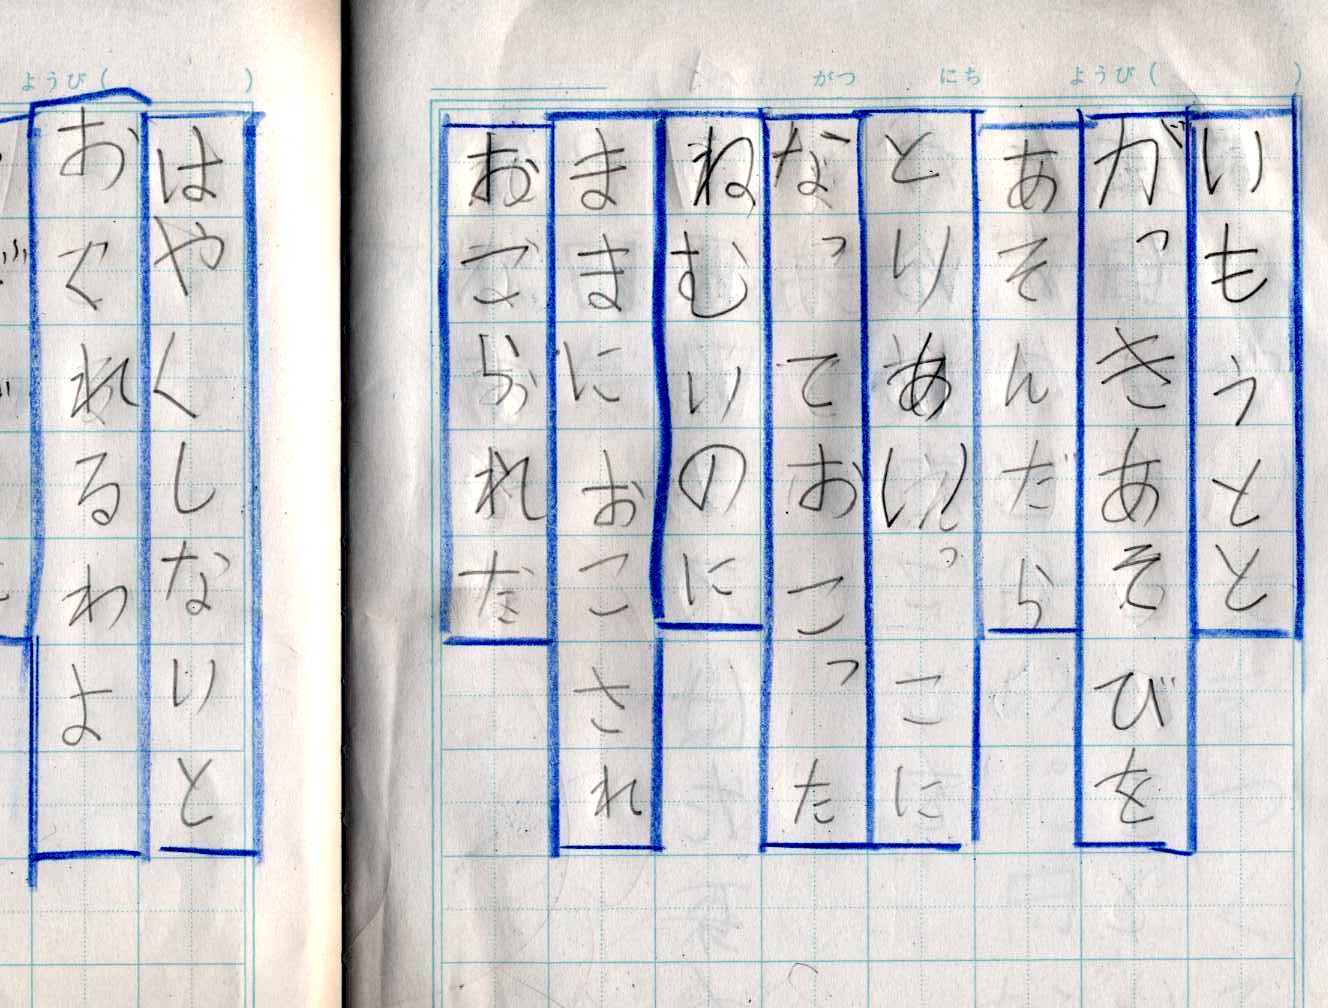 がつ　にち　ようび(　)
いもうとと
がっきあそびを
あそんだら
とりあいっこに
なっておこった
ねむいのに
ままにおこされ
おこられた
ようび(　)
はやくしないと
おくれるわよ